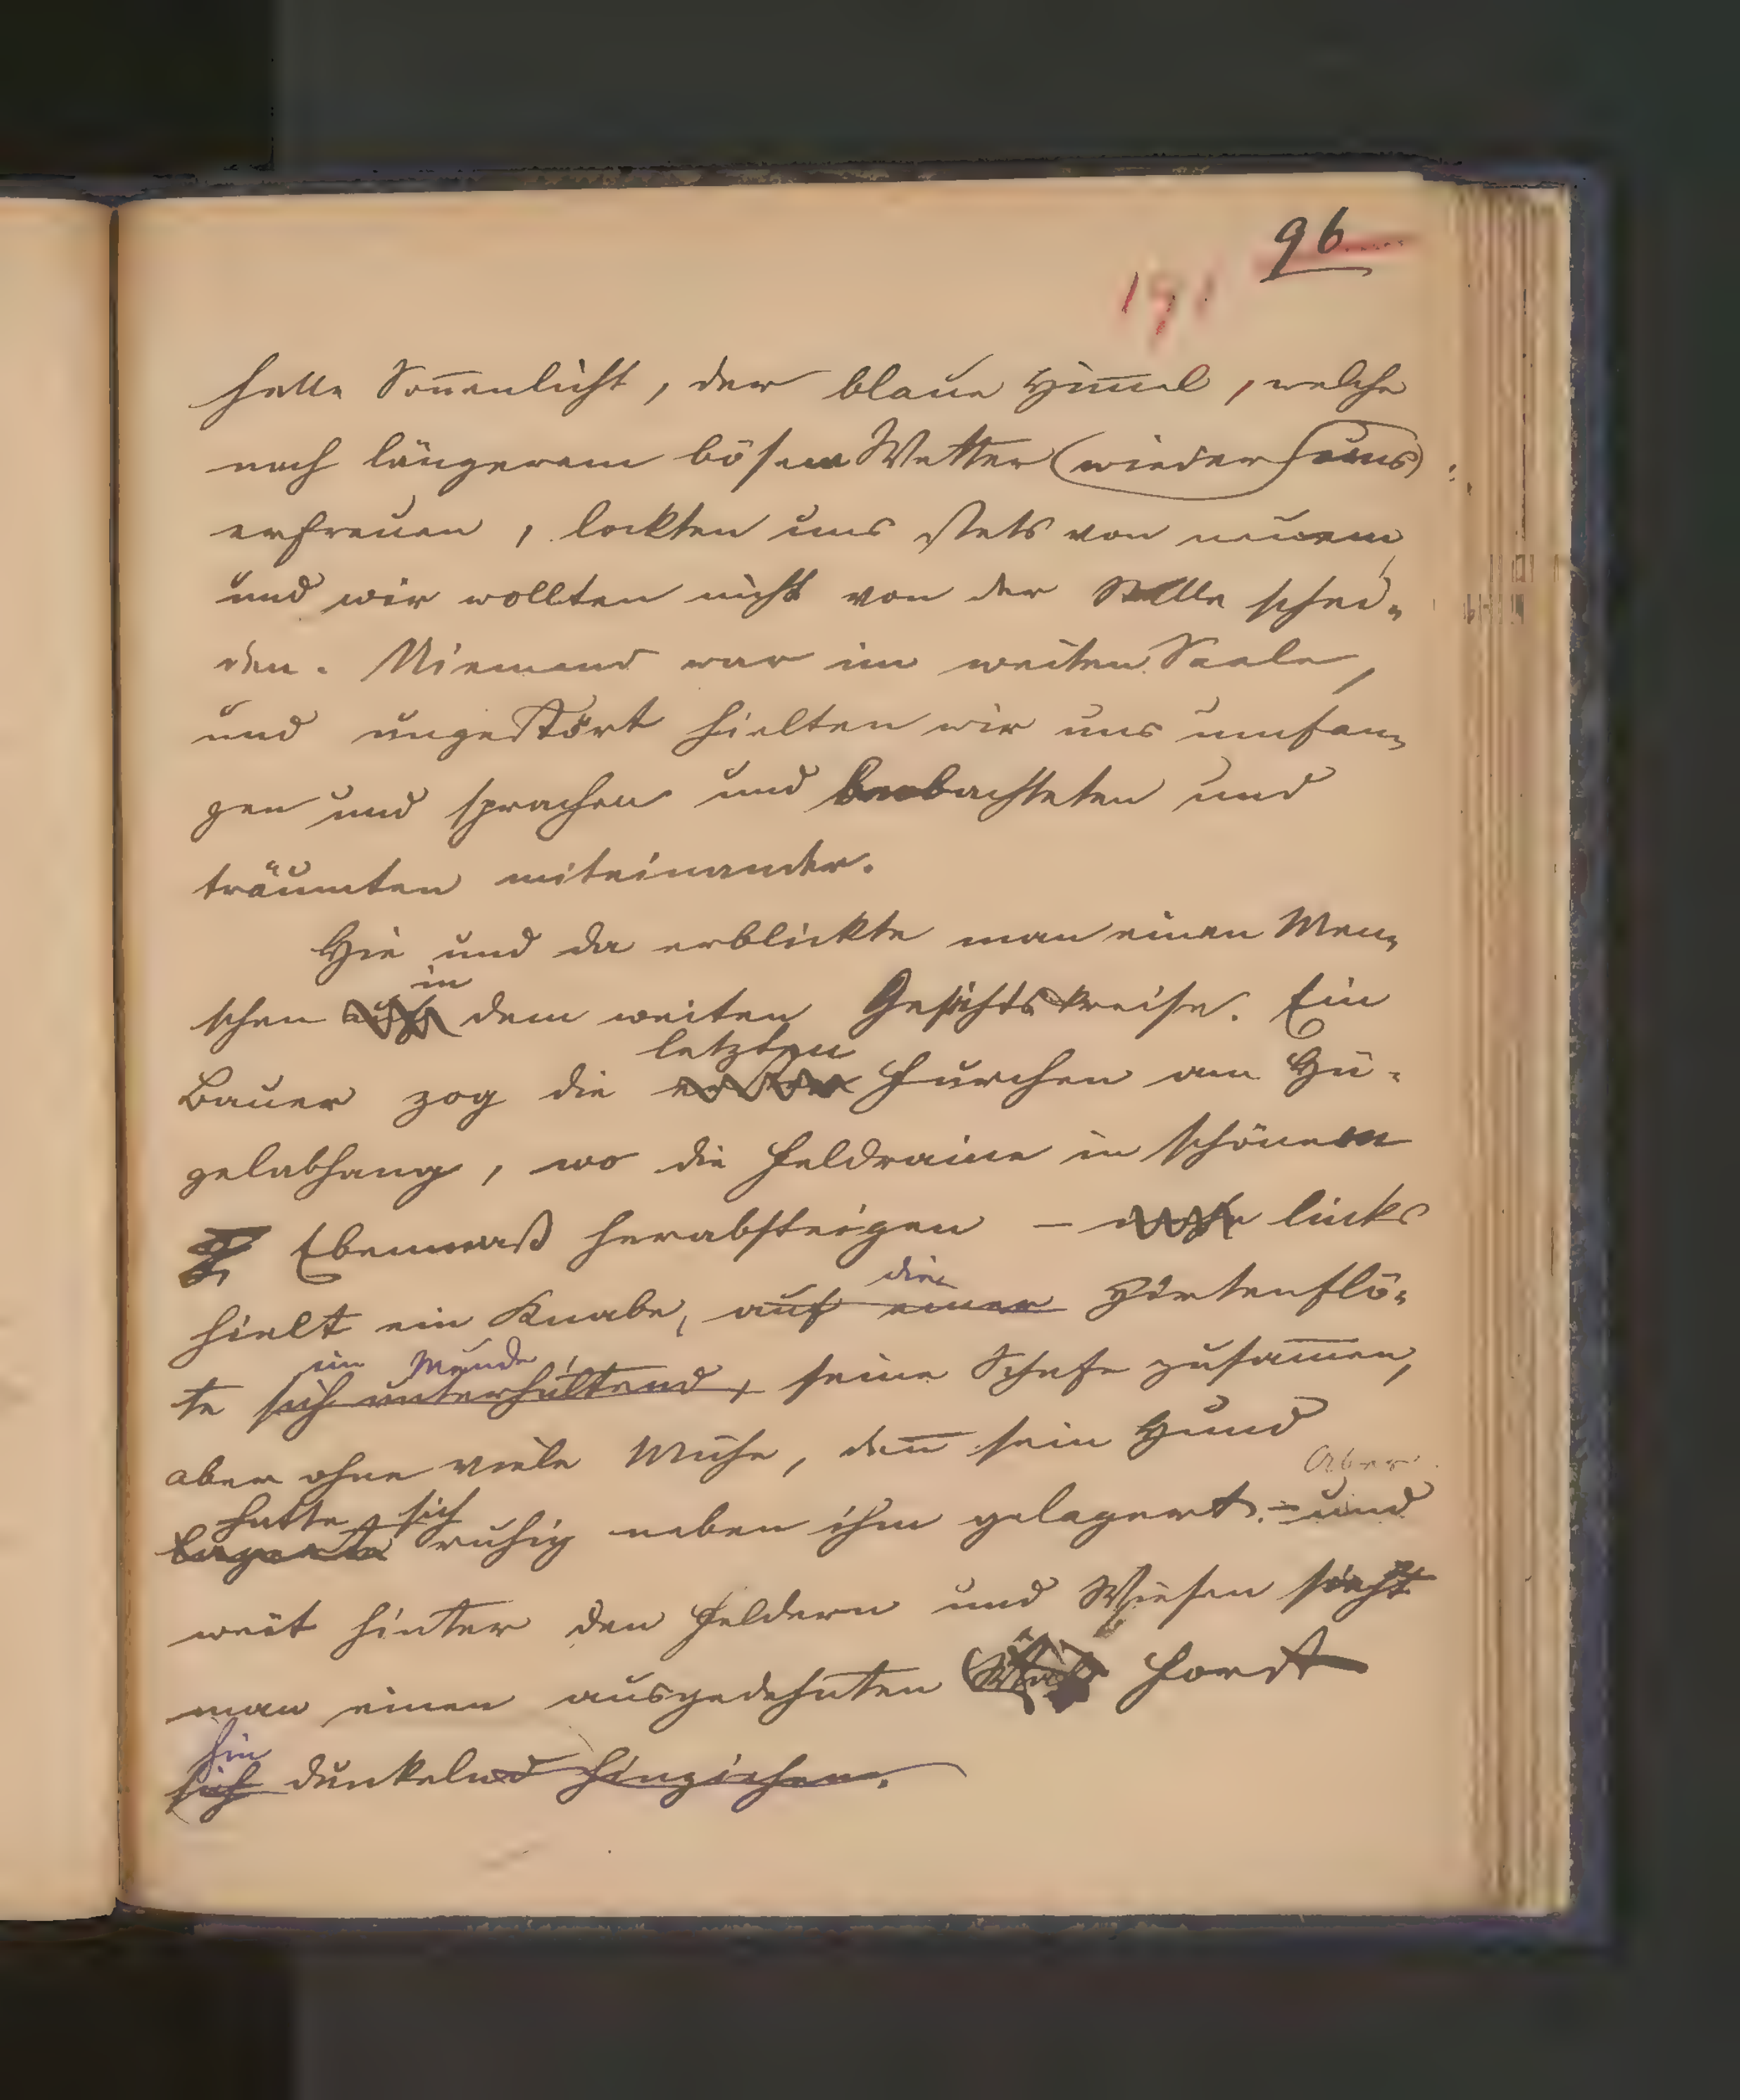 96
191
helle Soñenlicht, der blaue Him̃el, welche
nach längerem bösem Wetter (wieder uns)
erfreuen, lockten uns stets von neuem,
und wir wollten nicht von der Stelle schei-
den. Niemand war im weiten Saale,
und ungestört hielten wir uns umfan-
gen und sprachen und beobachteten und
träumten miteinander.
Hie und da erblickte man einen Men-
in
schen dem weiten Gesichtskreise. Ein
letzten
Bauer zog die Furchen am Hü-
gelabhang, wo die Feldraine in schönem
Ebenmaß herabsteigen – links
die
hielt ein Knabe, auf einer Hirtenflö-
im Munde
te sich unterhaltend, seine Schafe zusam̃en,
aber ohne viele Mühe, deñ sein Hund
Aber
hatte sich
lagerte ruhig neben ihm gelagert. – und
weit hinter den Feldern und Wiesen sieht
man einen ausgedehnten Forst
hin
sich dunkelnd hinziehen.